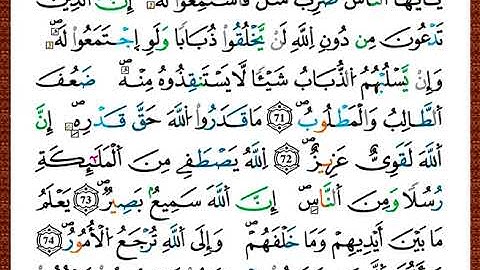 يَٰأَيُّهَا النَّاسُ ضُرِبَ مَثَلٌ فَاسْتَمِعُوا لَهُۥ إِنَّ الَّذِينَ
تَدْعُونَ مِن دُونِ اللَّهِ لَنْ يَّخْلُقُوا ذُبَابًا وَلَوِ اجْتَمَعُوا لَهُۥ
وَإِنْ يَّسْلُبْهُمُ الذُّبَابُ شَيْئًا لَّا يَسْتَنقِذُوهُ مِنْهُ ضَعُفَ
الطَّالِبُ وَالْمَطْلُوبُ 71 مَا قَدَرُوا اللَّهَ حَقَّ قَدْرِهِۦ إِنَّ
اللَّهَ لَقَوِيٌّ عَزِيزٌ 72 اللَّهُ يَصْطَفِي مِنَ الْمَلَٰٓئِكَةِ
رُسُلًا وَمِنَ النَّاسِ إِنَّ اللَّهَ سَمِيعٌ بَصِيرٌ 73 يَعْلَمُ
مَا بَيْنَ أَيْدِيهِمْ وَمَا خَلْفَهُمْ وَإِلَى اللَّهِ تُرْجَعُ الْأُمُورُ 74